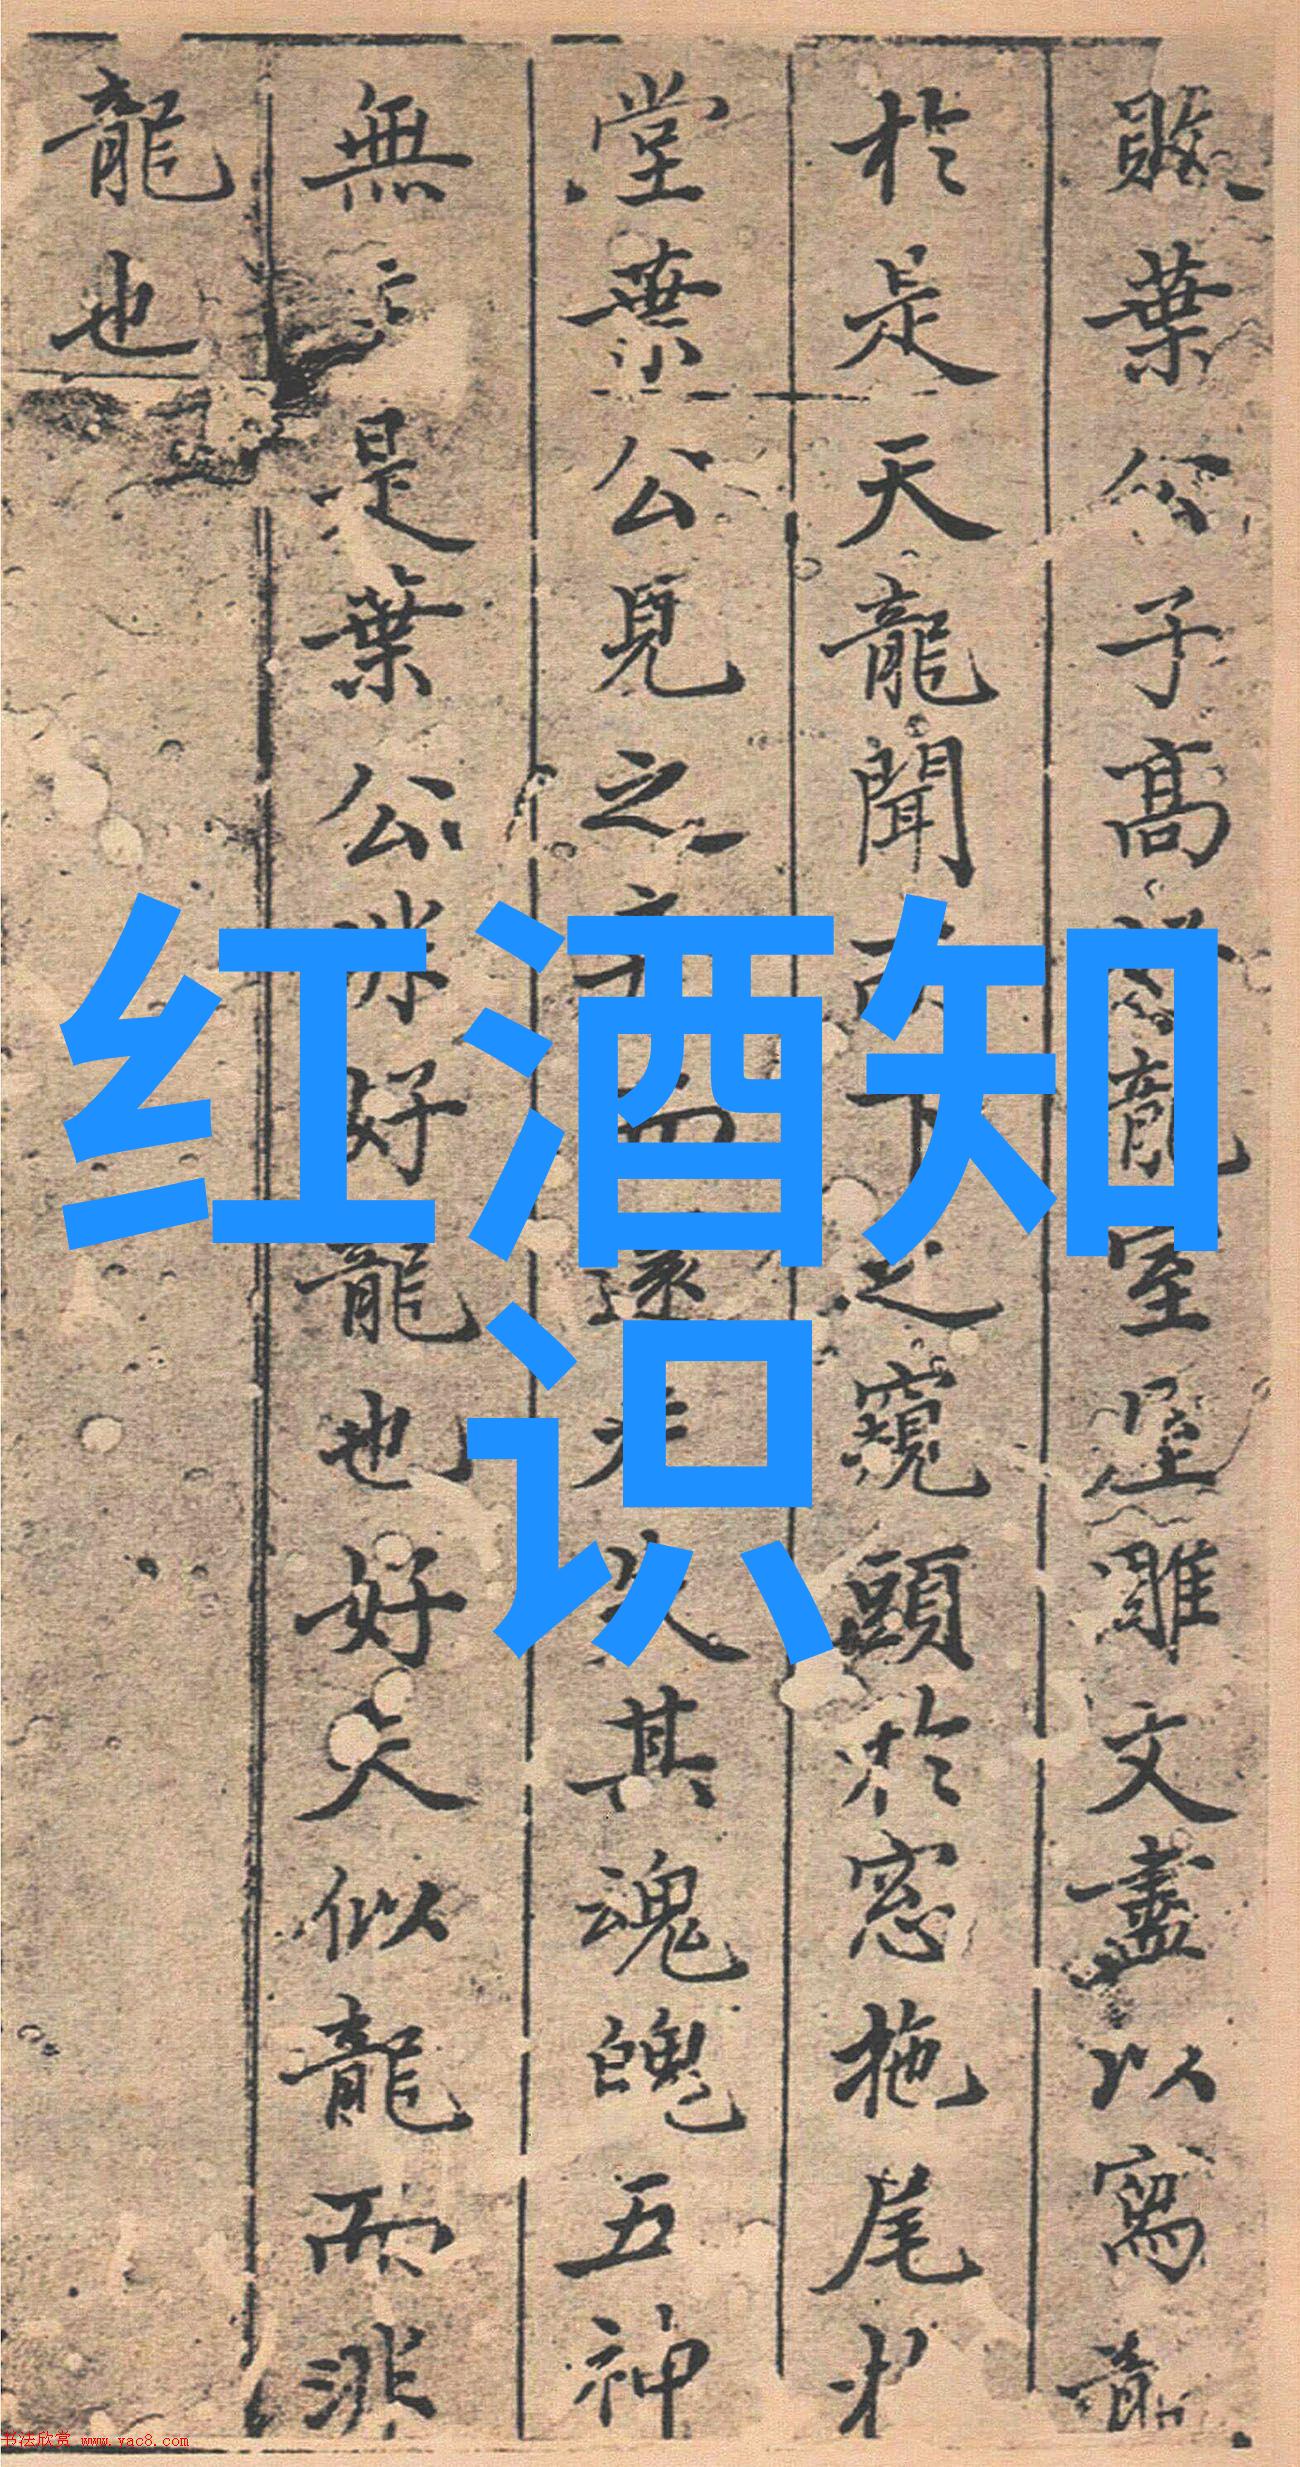 葉公子高好龍室屋雕文盡以寫龍
於是天龍聞而下之窺頭於窓拖尾於
堂葉公見之弃而還走失其魂魄五神
無主是葉公非好龍也好夫似龍而非
龍也
红酒知
识
书法欣赏 www.yac8.com